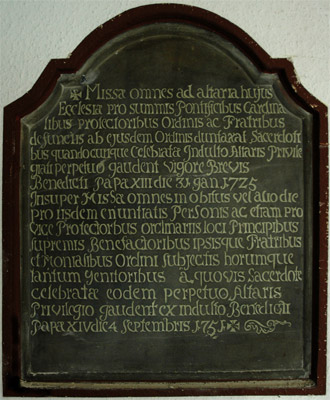 ✠ Missa omnes ad altaria hujus
Ecclesiæ pro summis Pontificibus Cardina
libus protectoribus Ordinis ac Fratribus
defunctis ab ejusdem Ordinis duntaxat Sacerdoti
bus quandocunque Celebratæ Indulto Altaris Privile
giati perpetuo gaudent Vigore Brevis
Benedicti PAPA XIII die 31 Jan 1725
Insuper Missa omnes in obitus vel alio die
pro iisdem enuntiatis Personis ac etiam pro
Vice Protectoribus ordinariis loci Principibus
supremis Benefactoribus ipsisque Fratribus
et Monialibus Ordini subjectis horumque
tantum Genitoribus à quovis Sacerdote
celebratæ eodem perpetuo Altaris
Privilegio gaudent ex indulto Benedicti
Papa XIV die 4 Septembris 1751 ✠